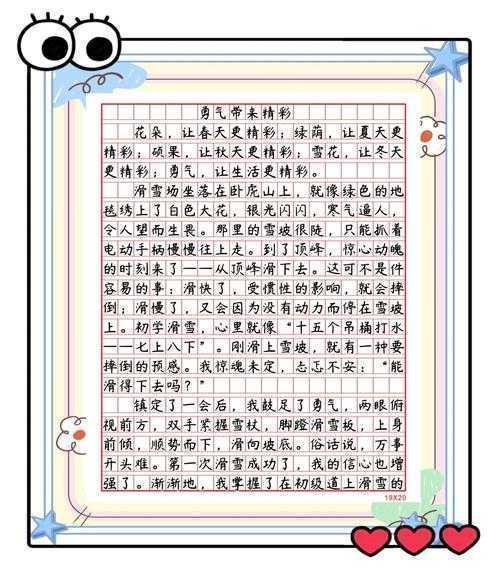 勇气带来精彩
花朵，让春天更精彩；绿荫，让夏天更
精彩；硕果，让秋天更精彩；雪花，让冬天
更精彩；勇气，让生活更精彩。
滑雪场坐落在卧虎山上，就像绿色的地
毯绣上了白色大花，银光闪闪，寒气逼人，
令人望而生畏。那里的雪坡很陡，只能抓着
电动手柄慢慢往上走。到了顶峰，惊心动魄
的时刻来了——从顶峰滑下去。这可不是件
容易的事：滑快了，受惯性的影响，就会摔
倒；滑慢了，又会因为没有动力而停在雪坡
上。初学滑雪，心里就像“十五个吊桶打水
——七上八下”。刚滑上雪坡，就有一种要
摔倒的预感。我惊魂未定，忐忑不安：“能
滑得下去吗？”
镇定了一会后，我鼓足了勇气，两眼俯
视前方，双手紧握雪杖，脚蹬滑雪板，上身
前倾，顺势而下，滑向坡底。俗话说，万事
开头难。第一次滑雪成功了，我的信心也增
强了。渐渐地，我掌握了在初级道上滑雪的
19X20